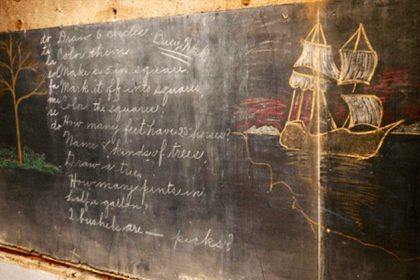 to Draw 6 circles Busy Work
ta Color them
la
sol Make a 5 in square
fa Mark it off into squares
mi Color the square
re
do How many feet have 25 horses?
Name 4 kinds of trees
Draw a tree,
How many pints in
half a gallon,
2 bushels are — pecks?